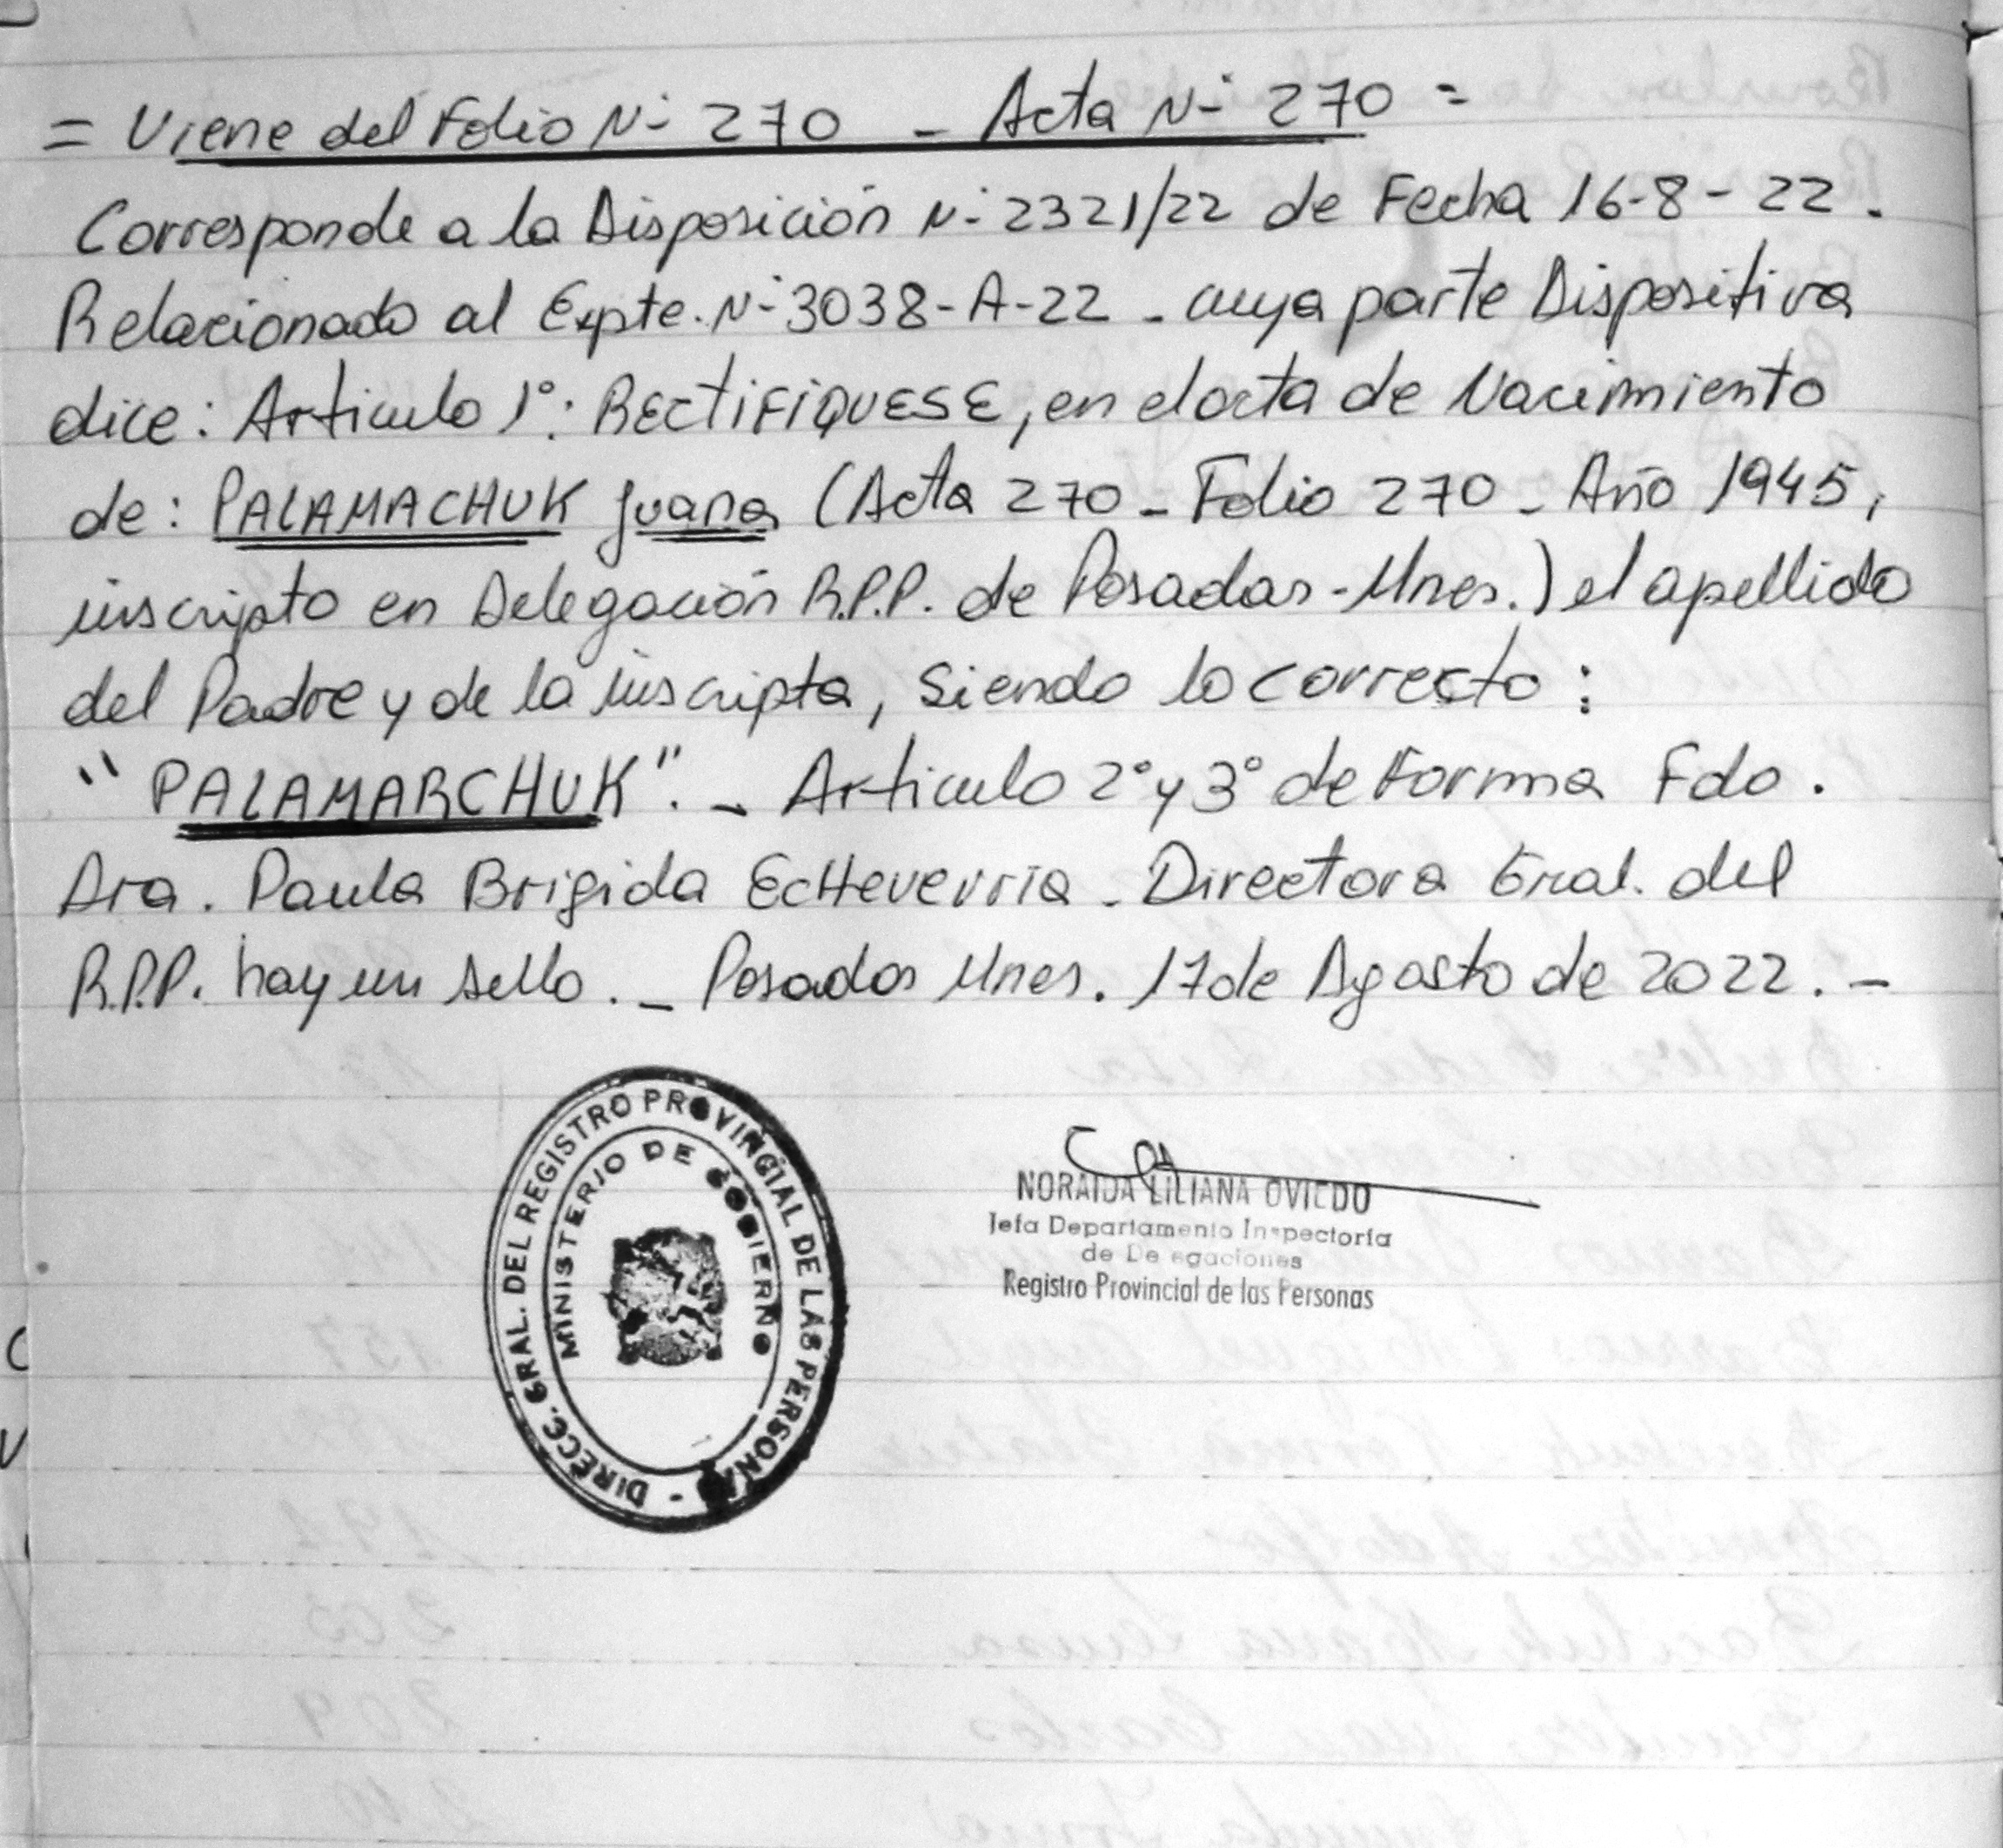 = Viene del Folio N- 270 - Acta N- 270 =
Corresponde a la Disposición N- 2321/22 de Fecha 16-8-22.
Relacionado al Expte. N- 3038-A-22 - cuya parte Dispositiva
dice: Articulo 1°: RECTIFIQUESE, en el acta de Nacimiento
de: PALAMACHUK Juana (Acta 270 - Folio 270 - Año 1945,
inscripto en Delegación R.P.P. de Posadas - Mnes.) el apellido
del Padre y de la inscripta, Siendo lo correcto:
"PALAMARCHUK". - Articulo 2° y 3° de Forma Fdo.
Dra. Paula Brigida EcHeverria - Directora Gral. del
R.P.P. hay un sello. - Posadas Mnes. 17 de Agosto de 2022. -
DIRECC. GRAL. DEL REGISTRO PROVINCIAL DE LAS PERSONAS -
MINISTERIO DE GOBIERNO
NORAIDA LILIANA OVIEDO
Jefa Departamento Inspectoría
de Delegaciones
Registro Provincial de las Personas